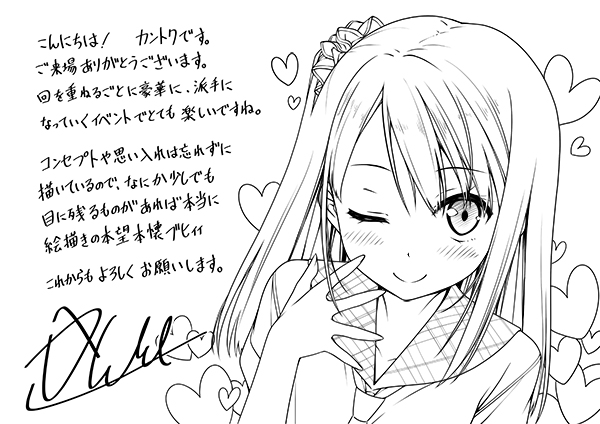 こんにちは! カントクです。
ご来場ありがとうございます。
回を重ねるごとに豪華に、派手に
なっていくイベントでとても楽しいですね。
コンセプトや思い入れは忘れずに
描いているので、なにか少しでも
目に残るものがあれば本当に
絵描きの本望本懐ブヒィィ
これからもよろしくお願いします。